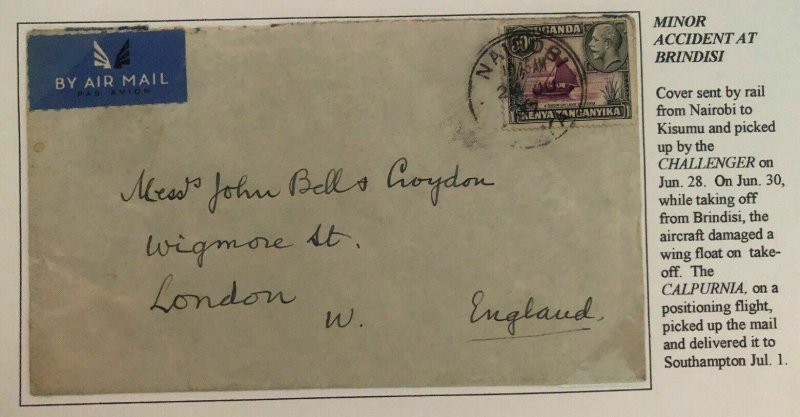 BY AIR MAIL
PAR AVION
NAIROBI
UGANDA
KENYA TANGANYIKA
Messrs John Bell & Croydon
Wigmore St.
London
W.
England.
MINOR
ACCIDENT AT
BRINDISI
Cover sent by rail
from Nairobi to
Kisumu and picked
up by the
CHALLENGER on
Jun. 28. On Jun. 30,
while taking off
from Brindisi, the
aircraft damaged a
wing float on take-
off. The
CALPURNIA, on a
positioning flight,
picked up the mail
and delivered it to
Southampton Jul. 1.